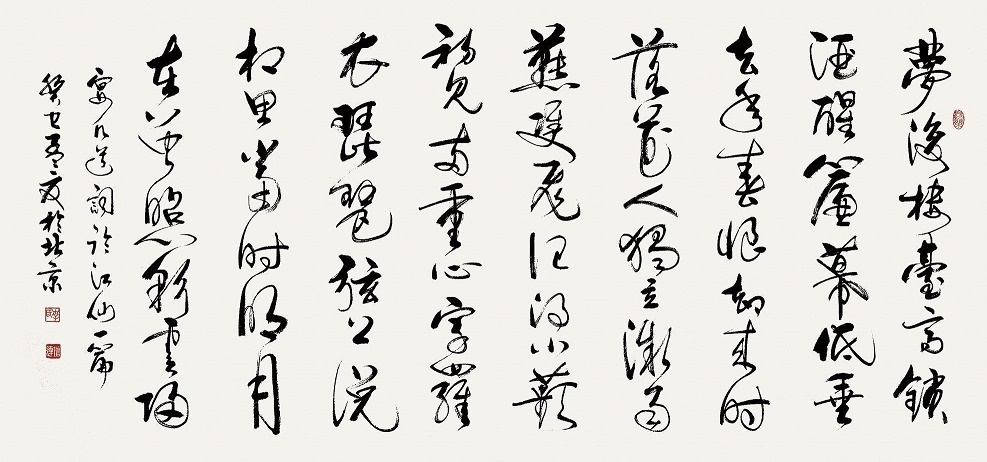 夢後樓臺高鎖
酒醒簾幕低垂
去年春恨却来时
落花人獨立微雨
燕雙飛记得小蘋
初見兩重心字羅
衣琵琶弦上说
相思當时明月
在曾照彩雲歸
晏几道詞临江仙一篇
癸巳孟夏於北京